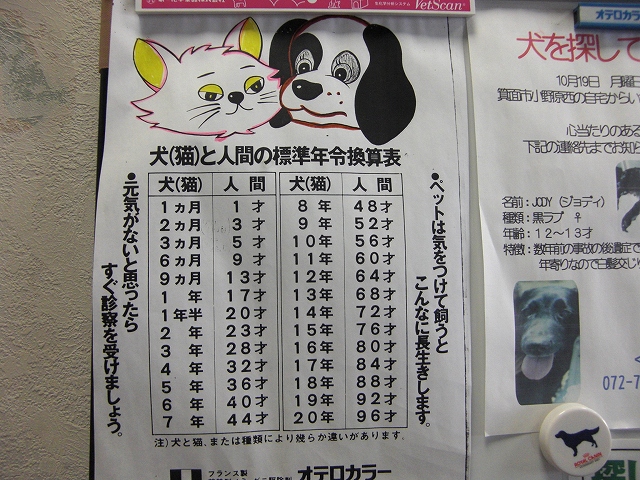 VetScan
犬(猫)と人間の標準年令換算表
犬(猫) 人間 犬(猫) 人間
1ヵ月 1才 8年 48才
2ヵ月 3才 9年 52才
3ヵ月 5才 10年 56才
6ヵ月 9才 11年 60才
9ヵ月 13才 12年 64才
1年 17才 13年 68才
1年半 20才 14年 72才
2年 23才 15年 76才
3年 28才 16年 80才
4年 32才 17年 84才
5年 36才 18年 88才
6年 40才 19年 92才
7年 44才 20年 96才
●ペットは気をつけて飼うと
こんなに長生きします。
●元気がないと思ったら
すぐ診察を受けましょう。
注)犬と猫、または種類により幾らか違いがあります。
フランス製
オテロカラー
オテロカラ
犬を探して
10月19日 月曜日
箕面市小野原西の自宅からい
心当たりのある
下記の連絡先までお知ら
名前:JODY(ジョディ)
種類:黒ラブ ♀
年齢:12~13才
特徴:数年前の事故の後遺症で
年寄りなので白髪交じり
072-7
ROYAL CANIN